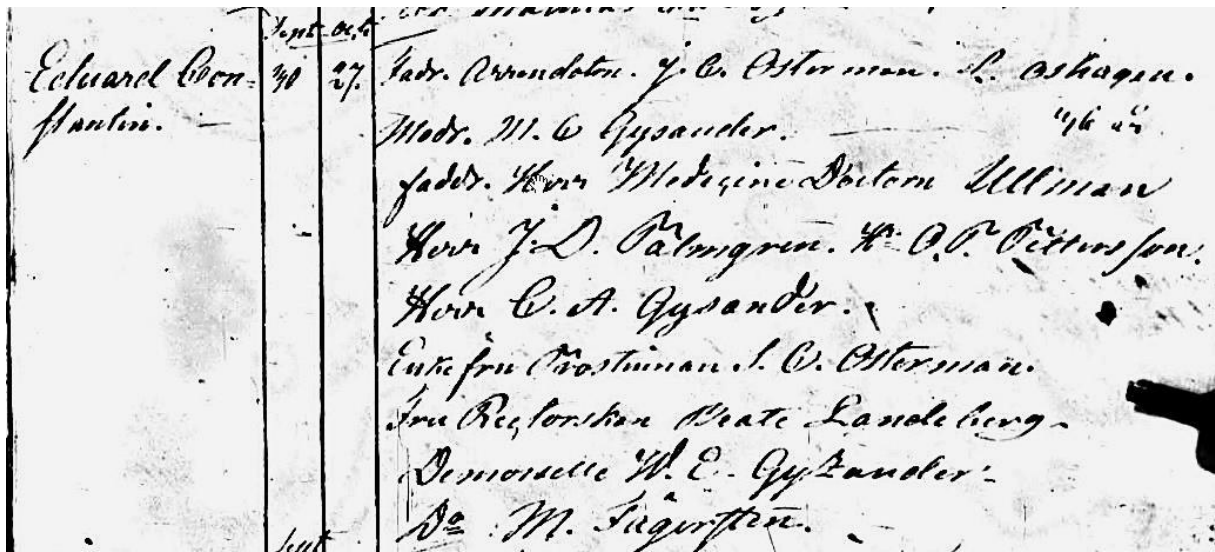 Sept Oct
Eduard Con- 30 27. Fadr. Arrendatorn. J. C. Osterman. L. Oshagen.
stantin.
Modr. M. C Gysander. 46 år
Faddr. Herr Medecine Doctorn Ullman
Herr J. D. Palmgren. Hr O. P. Pettersson.
Herr C. A. Gysander.
Enkefru Prostinnan S. C. Osterman.
Fru Rectorskan Beate Landeberg.
Demoiselle W. E. Gyzander.
Do M. Fagersten.
Sept